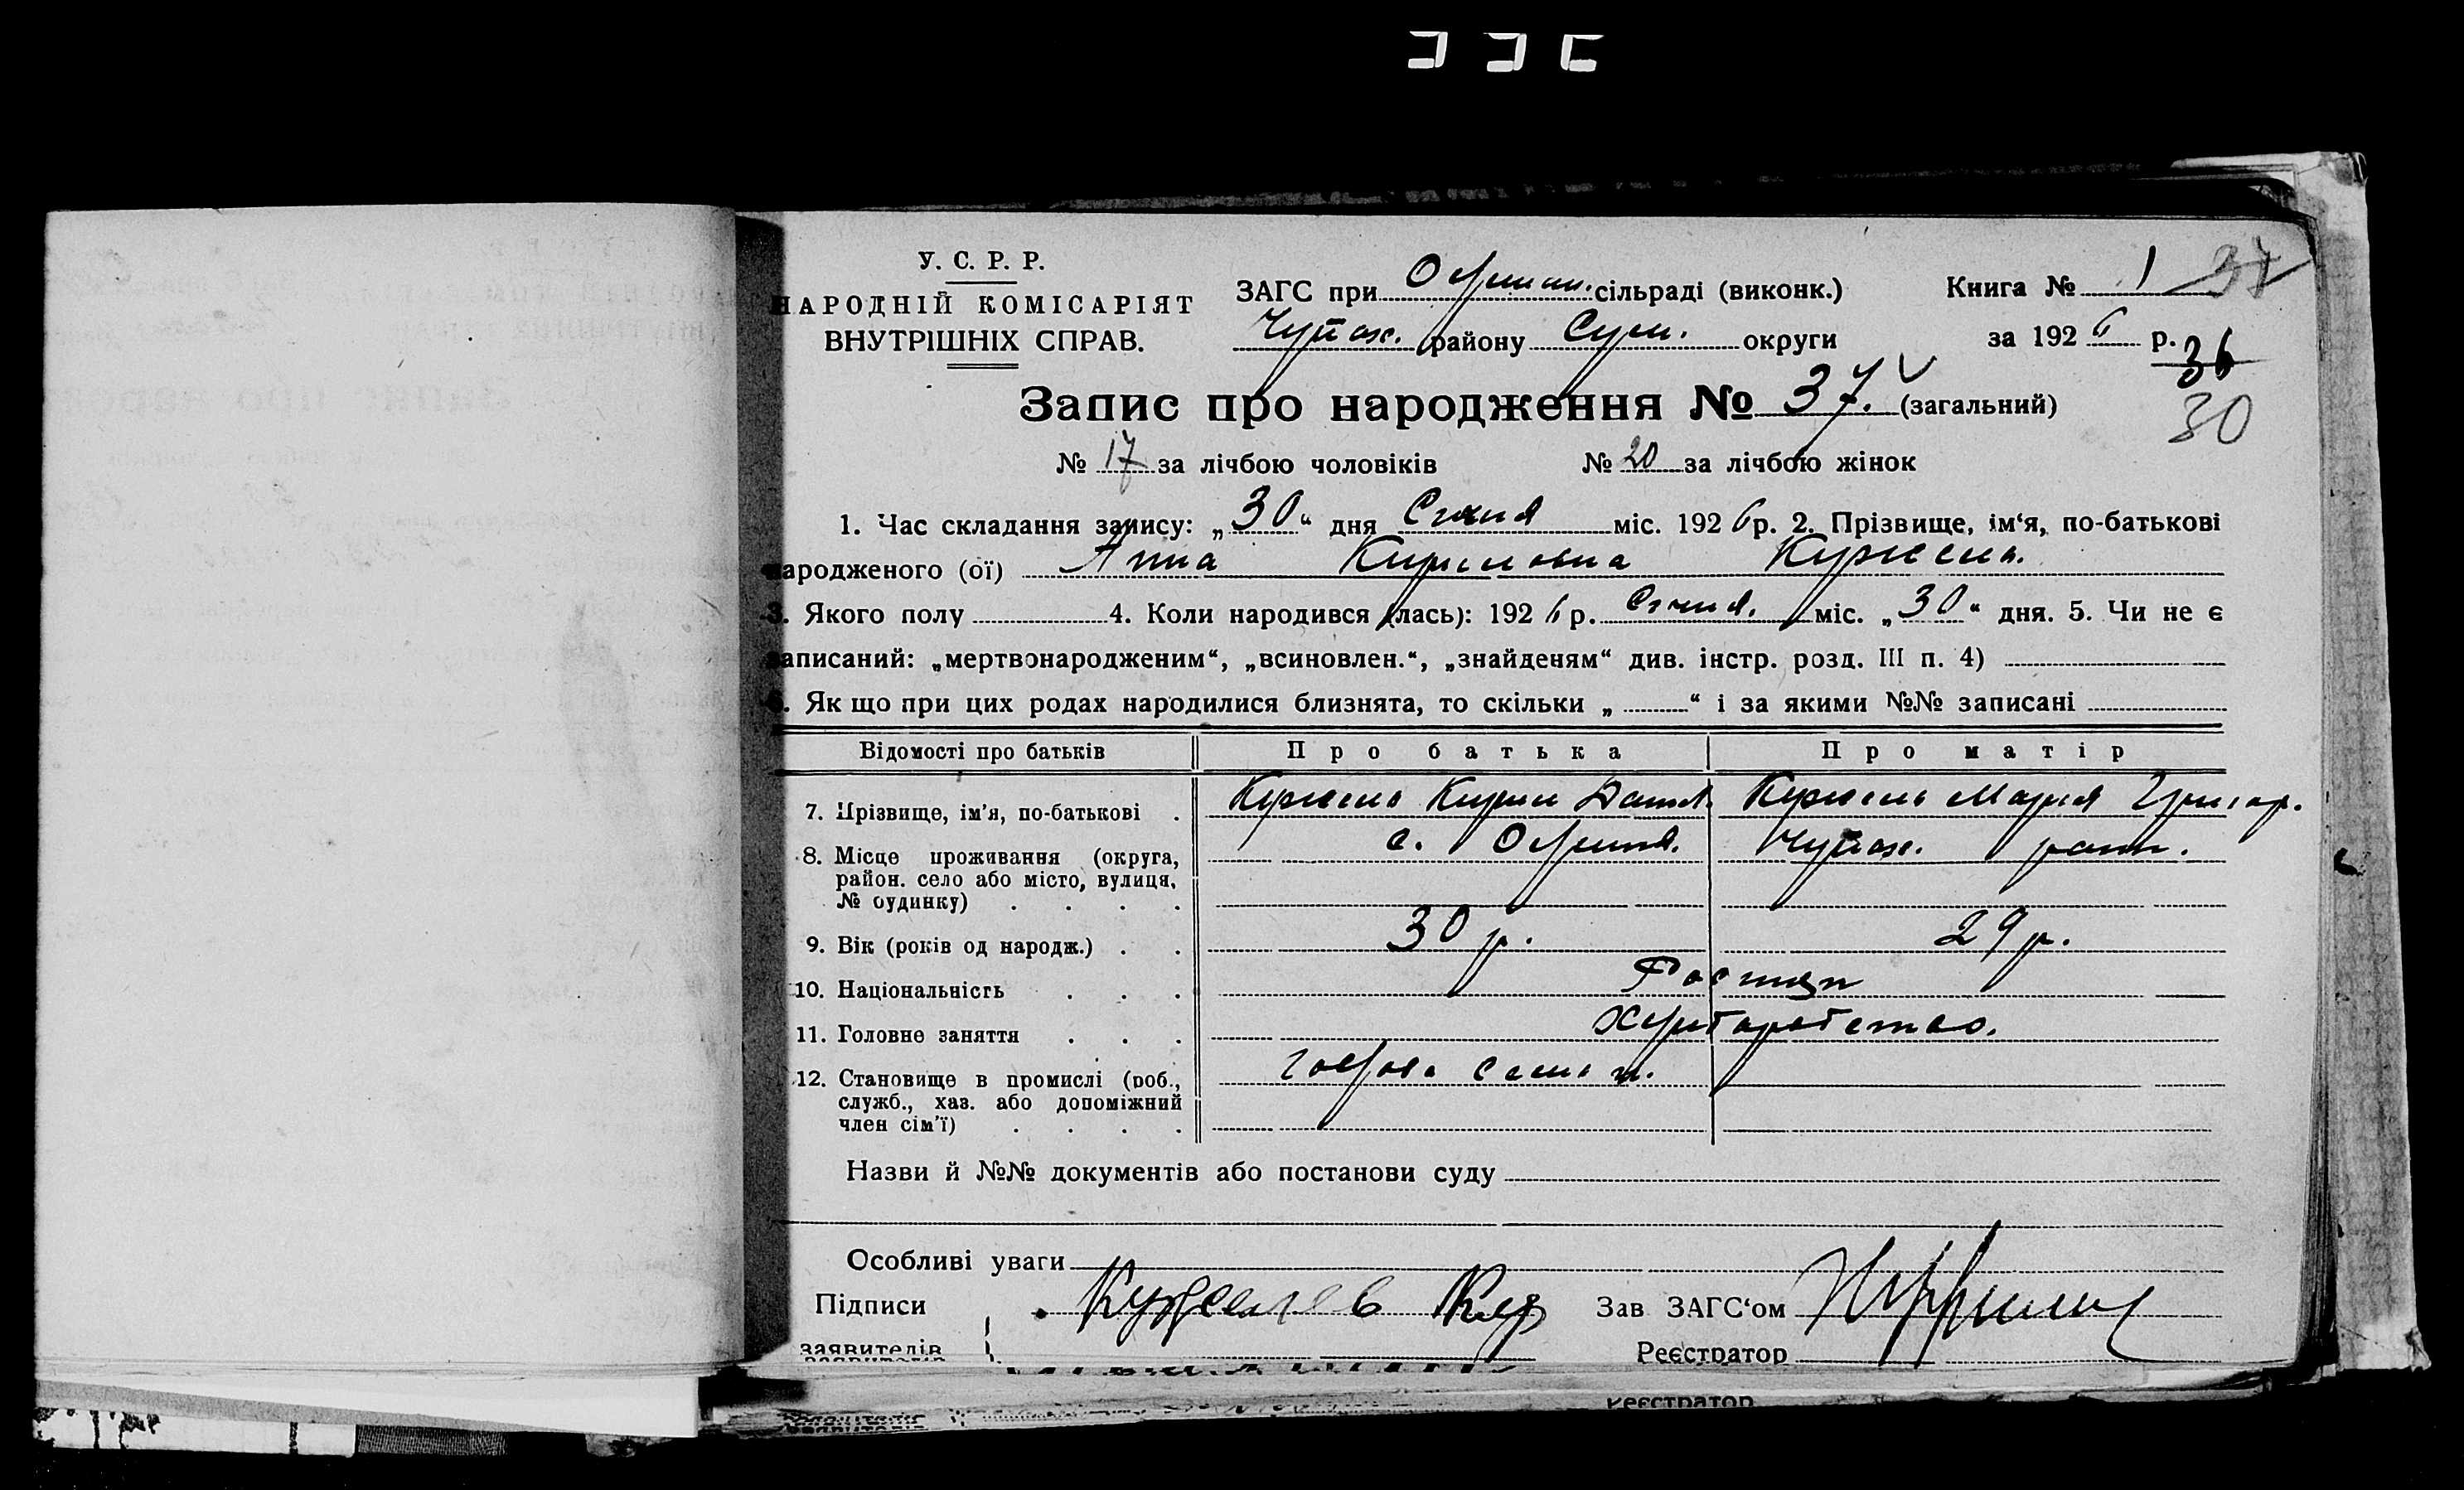 У. С. Р. Р.
НАРОДНІЙ КОМІСАРІЯТ
ВНУТРІШНІХ СПРАВ.
ЗАГС при сільраді (виконк.)
Чупах. району Сум. округи
Книга № 1 37
за 1926 р.
36
30
Запис про народження № 37. (загальний)
№ 17 за лічбою чоловіків № 20 за лічбою жінок
1. Час складання запису: „30“ дня Січня міс. 1926 р. 2. Прізвище, ім‘я, по-батькові
народженого (ої) Анна Кириловна
3. Якого полу 4. Коли народився (лась): 1926 р. Січня. міс. „30“ дня. 5. Чи не є
записаний: „мертвонародженим“, „всиновлен.“, „знайденям“ див. інстр. розд. III п. 4)
6. Як що при цих родах народилися близнята, то скільки „ “ і за якими №№ записані
Відомості про батьків Про батька Про матір
7. Прізвище, ім'я, по-батькові . Кирил Данил. Мария Григор.
8. Місце проживання (округа, с. Чупах. район.
район. село або місто, вулиця,
№ будинку) . . . .
9. Вік (років од народж.) . . 30 р. 29 р.
10. Національність . . .
11. Головне заняття . . .
12. Становище в промислі (роб.,
служб., хаз. або допоміжний
член сім'ї) . . . .
Назви й №№ документів або постанови суду
Особливі уваги
Підписи Зав ЗАГС‘ом
заявителів Реєстратор
Реєстратор